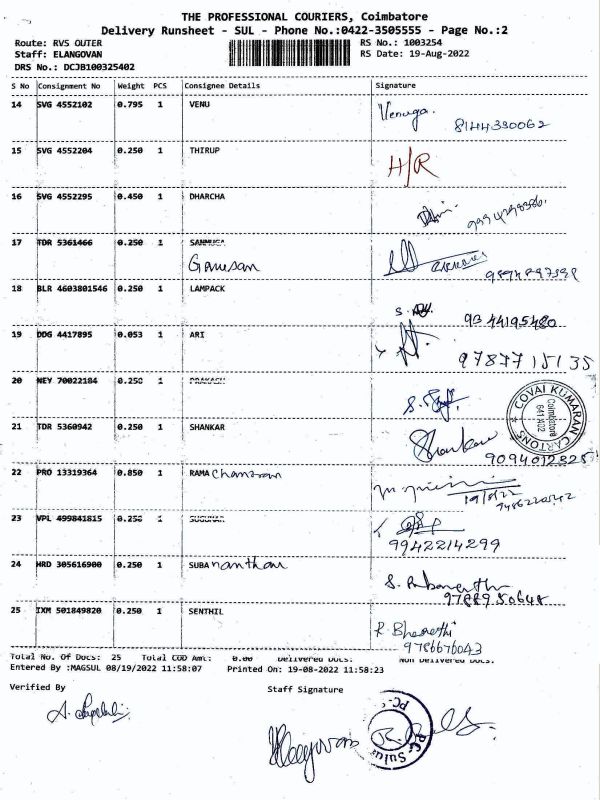 THE PROFESSIONAL COURIERS, Coimbatore
Delivery Runsheet - SUL - Phone No.:0422-3505555 - Page No.:2
Route: RVS OUTER RS No.: 1003254
Staff: ELANGOVAN RS Date: 19-Aug-2022
DRS No.: DCJB100325402
S No Consignment No Weight PCS Consignee Details Signature
14 SVG 4552102 0.795 1 VENU Venuga.
8144330062
15 SVG 4552204 0.250 1 THIRUP H/R
16 SVG 4552295 0.450 1 DHARCHA
17 TDR 5361466 0.250 1 SANMUGA
Ganesan
18 BLR 4603801546 0.250 1 LAMPACK
S. 9344195480
19 DDG 4417895 0.053 1 ARI
9787715135
20 NEY 70022184 0.250 1 PRAKASH
COVAI KUMARAN CARTONS
Coimbatore
641 402
21 TDR 5360942 0.250 1 SHANKAR Shankar
9094012825
22 PRO 13319364 0.850 1 RAMA
19/8/22
23 VPL 499841815 0.250 1 SUGUNAN
9942214299
24 HRD 305616900 0.250 1 SUBA nanthan
25 IXM 501849820 0.250 1 SENTHIL R. Bharathi
9786676043
Total No. Of Docs: 25 Total COD Amt: 0.00 Delivered Docs: Non Delivered Docs:
Entered By :MAGSUL 08/19/2022 11:58:07 Printed On: 19-08-2022 11:58:23
Verified By Staff Signature
Elangovan
PC - Sulur